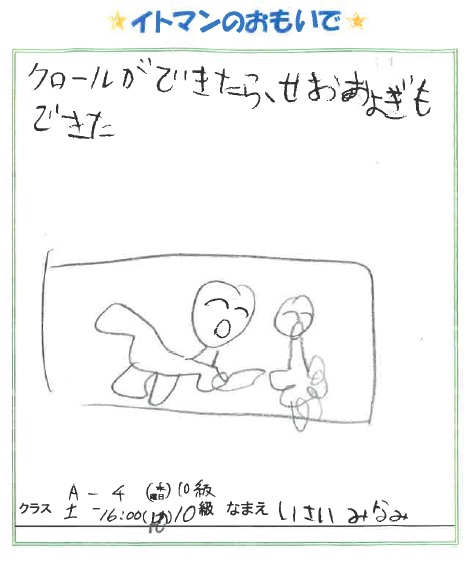 イトマンのおもいで
クロールができたら、せおおよぎも
できた
A－4 (水曜日)10級
クラス 土－16:00 10級 なまえ いさい みなみ